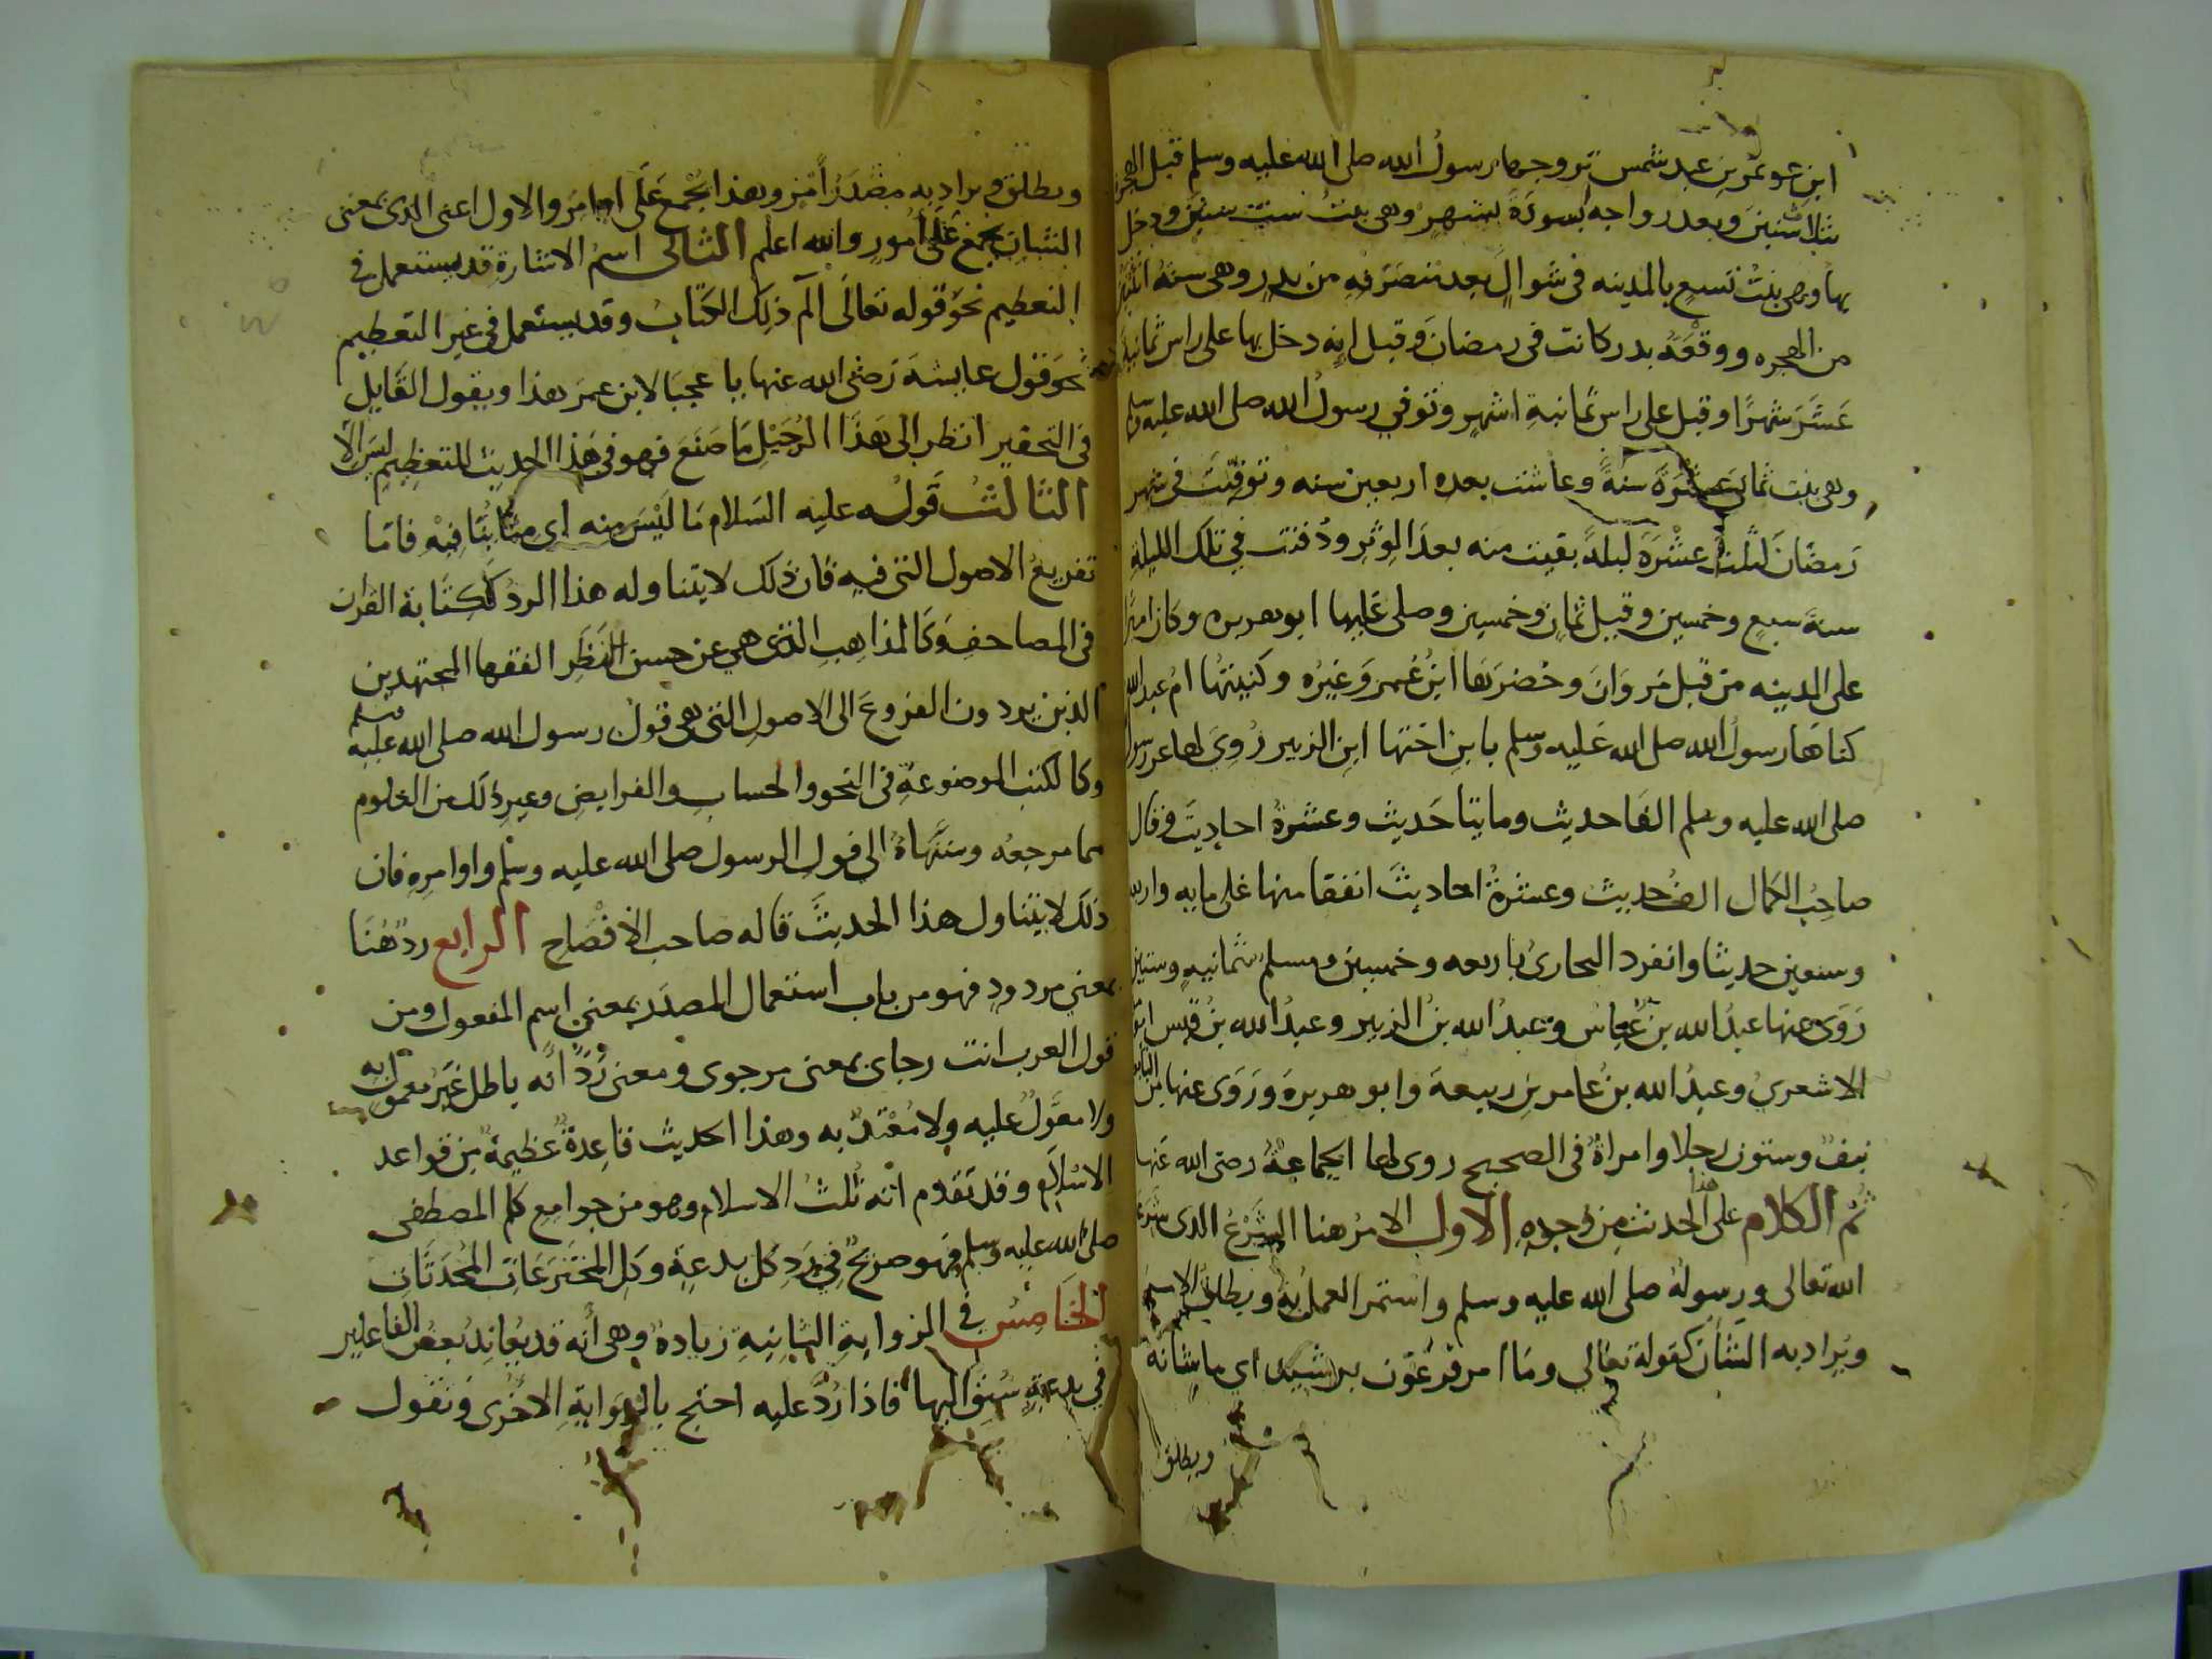 ابن عويمر بن عبد شمس تزوجها رسول الله صلى الله عليه وسلم قبل الهجرة
بثلاث سنين وبعد زواجه بسودة بشهر وهي بنت ست سنين ودخل
بها وهي بنت تسع بالمدينه في شوال بعد منصرفه من بدر وهي سنة اثنتين
من الهجره ووقعة بدر كانت في رمضان وقيل انه دخل بها على راس ثمانية
عشر شهرا وقيل على راس ثمانية اشهر وتوفي رسول الله صلى الله عليه وسلم
وهي بنت ثماني عشرة سنة وعاشت بعده اربعين سنه وتوفيت في شهر
رمضان لثلاث عشرة ليلة بقيت منه بعد الوتر ودفنت في تلك الليلة
سنة سبع وخمسين وقيل ثمان وخمسين وصلى عليها ابو هريره وكان اميرا
على المدينه من قبل مروان وحضرتها ابن عمر وغيره وكنيتها ام عبد الله
كناها رسول الله صلى الله عليه وسلم بابن اختها ابن الزبير روي لها عن رسول
صلى الله عليه وسلم الفا حديث ومايتا حديث وعشرة احاديث وقال
صاحب الكمال الف حديث وعشرة احاديث اتفقا منها على مايه واربعه
وسبعين حديثا وانفرد البخاري باربعه وخمسين ومسلم بثمانيه وستين
روى عنها عبد الله بن عباس وعبد الله بن الزبير وعبد الله بن قيس ابو
الاشعري وعبد الله بن عامر بن ربيعة وابو هريرة وروى عنها من التابعين
نيف وستون رجلا وامراة في الصحيح روى لها الجماعة رضى الله عنها
ثم الكلام على هذا الحديث من وجوه الاول الامر هنا الشرع الذى شرعه
الله تعالى ورسوله صلى الله عليه وسلم واستمر العمل به ويطلق الاسم
ويراد به الشان كقوله تعالى وما امر فرعون برشيد اى ما شانه
ويطلق
ويطلق ويراد به مصدر امر وهذا يجمع على اوامر والاول اعنى الذى بمعنى
الشان يجمع على امور والله اعلم الثانى اسم الاشارة قد يستعمل في
التعظيم نحو قوله تعالى الم ذلك الكتاب وقد يستعمل في غير التعظيم
نحو قول عايشة رضى الله عنها يا عجبا لابن عمر هذا ويقول القايل
في التحقير انظر الى هذا الرجيل ما صنع فهو في هذا الحديث للتعظيم ليس الا
الثالث قوله عليه السلام ما ليس منه اى منابتا فيه فاما
تفريع الاصول التي فيه فان ذلك لا يتناوله هذا الرد ككتابة القران
في المصاحف وكالمذاهب التي هي عن حسن النظر الفقها المجتهدين
الذين يردون الفروع الى الاصول التي هي قول رسول الله صلى الله عليه وسلم
وكالكتب الموضوعة في النحو والحساب والفرايض وغير ذلك من العلوم
مما مرجعه ومنتهاه الى قول الرسول صلى الله عليه وسلم واوامره فان
ذلك لا يتناول هذا الحديث قاله صاحب الافصاح الرابع رد هنا
بمعنى مردود فهو من باب استعمال المصدر بمعنى اسم المفعول ومن
قول العرب انت رجاى بمعنى مرجوى ومعنى رد انه باطل غير معمول به
ولا معول عليه ولا معتد به وهذا الحديث قاعدة عظيمة من قواعد
الاسلام وقد تقدم انه ثلث الاسلام وهو من جوامع كلم المصطفى
صلى الله عليه وسلم فهو صريح في رد كل بدعة وكل المخترعات المحدثات
الخامس في الرواية الثانية زيادة وهى انه قد يعاند بعض الفاعلين
في بدعة سبق اليها فاذا رد عليه احتج بالرواية الاخرى فنقول